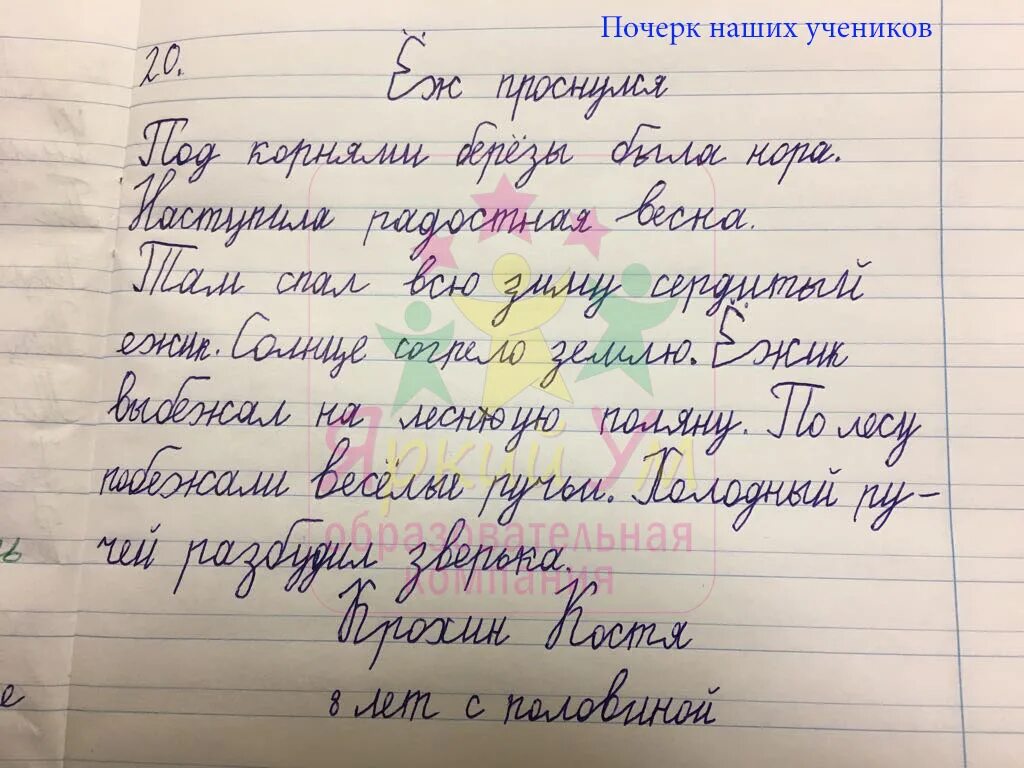 Почерк наших учеников
20.
Ёж проснулся
Под корнями берёзы была нора.
Наступила радостная весна.
Там спал всю зиму сердитый
ежик. Солнце согрело землю. Ёжик
выбежал на леснюую поляну. По лесу
побежали весёлые ручьи. Холодный ру-
чей разбудил зверька.
Крохин Костя
8 лет с половиной
Яркий Ум
образовательная
компания